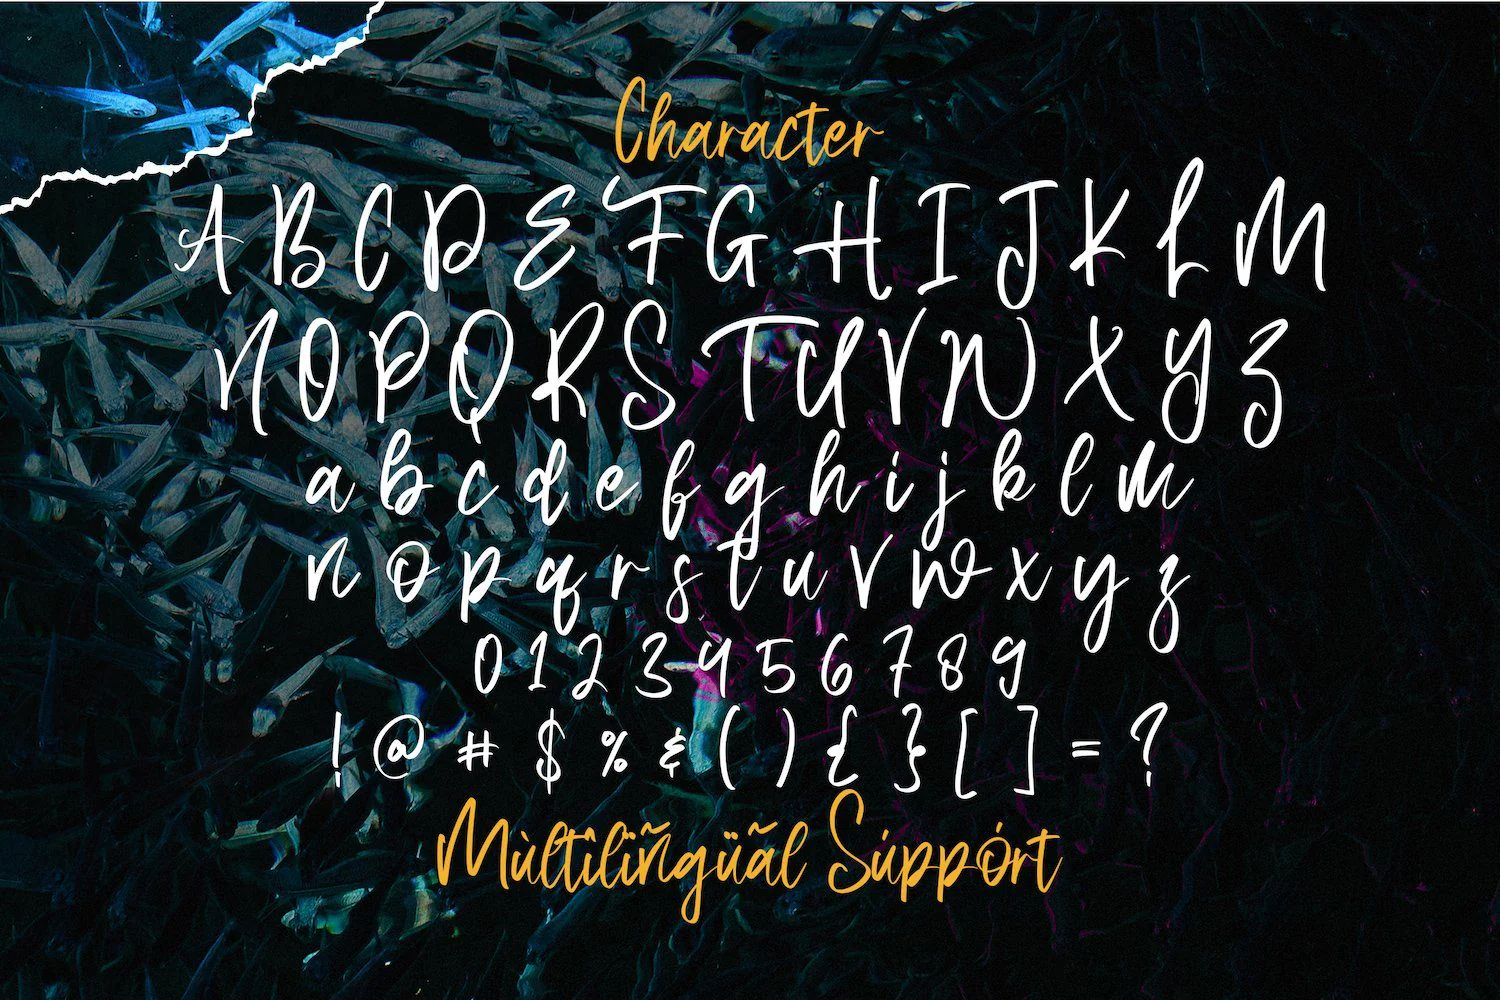 Character
A B C D E F G H I J K L M
N O P Q R S T U V W X Y Z
a b c d e f g h i j k l m
n o p q r s t u v w x y z
0 1 2 3 4 5 6 7 8 9
! @ # $ % & ( ) { } [ ] = ?
Mùltîlïñgüãl Súppórt